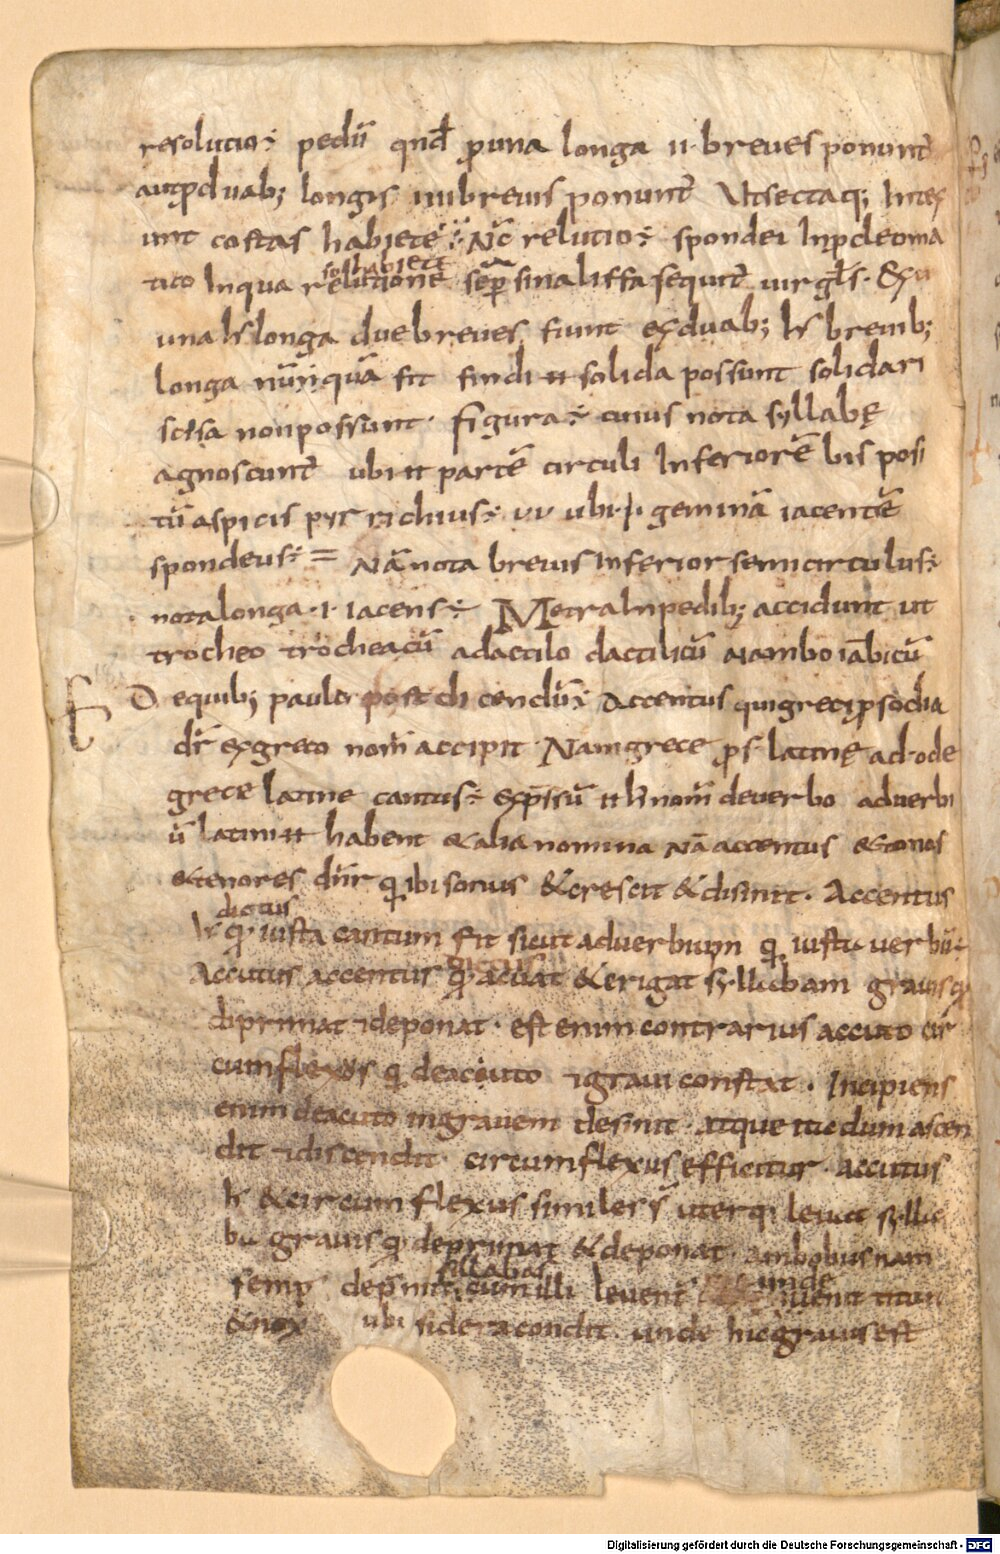 resolutio÷ pedū qnđ ꝓuna longa ii·breues ponunt̄
autꝓduab; longis iiiibreuis ponunt̄ Utsectaq; Intex
unt costas habiete ÷ Nc̄ relutio÷ spondei Inꝓcleoma
sollabiete
tico Inqua relutione sep̄ sinaliffa sequit̄ uirgłs· Ex
una ħ longa duebreues fiunt exduab; ħ breuib;
longa nūnquā fit findi ħ solida possunt solidari
scisa nonpossunt· figura÷ cuius nota syllabę
agnoscunt̄ ubi ħ partē circuli Inferiorē bis posi
tū aspicis pyrrichius÷ uu ubi· geminā iacentē
spondeus÷ = Nā nota breuis Inferior semicirculus÷
notalonga·i·iacens÷ Metra Inpedib; accidunt ut
trocheo trocheacū adactilo dactilicū aiambo iābicū
D equib; paulo post dicendū÷ Accentus quigreciꝓsodia
dr̄ exgreco nom̄ accipit· Nam grece ꝓs· latinę ad·ode
grece latine cantus÷ exp̄ssū ħ nom̄ deuerbo aduerbi
ū latini ħ habent &alia nomina Nā accentus &tonos
&tenores dn̄r q ibi sonus &crescit &disinit· Accentus
dictus
ħ q iusta cantum fit sicut aduerbium q iusta uerbū÷
Accutus accentus q accuat &erigat syllabam grauis q
diprimat &deponat· est enim contrarius accuto cir
cumflexus q deacuto &graui constat· Incipiens
enim deacuto ingrauem desinit· atque ita dum ascen
dit &discendit· circumflexus efficitur· accutus
ħ &circumflexus similes s̄ uterq leuat sylla
ba grauis q deprimat &deponat· ambobus nam
sillabas unde
semp deprimit cum illi leuent uenit titan
&nox ubi sidera condit· unde hic grauis est
Digitalisierung gefördert durch die Deutsche Forschungsgemeinschaft - DFG